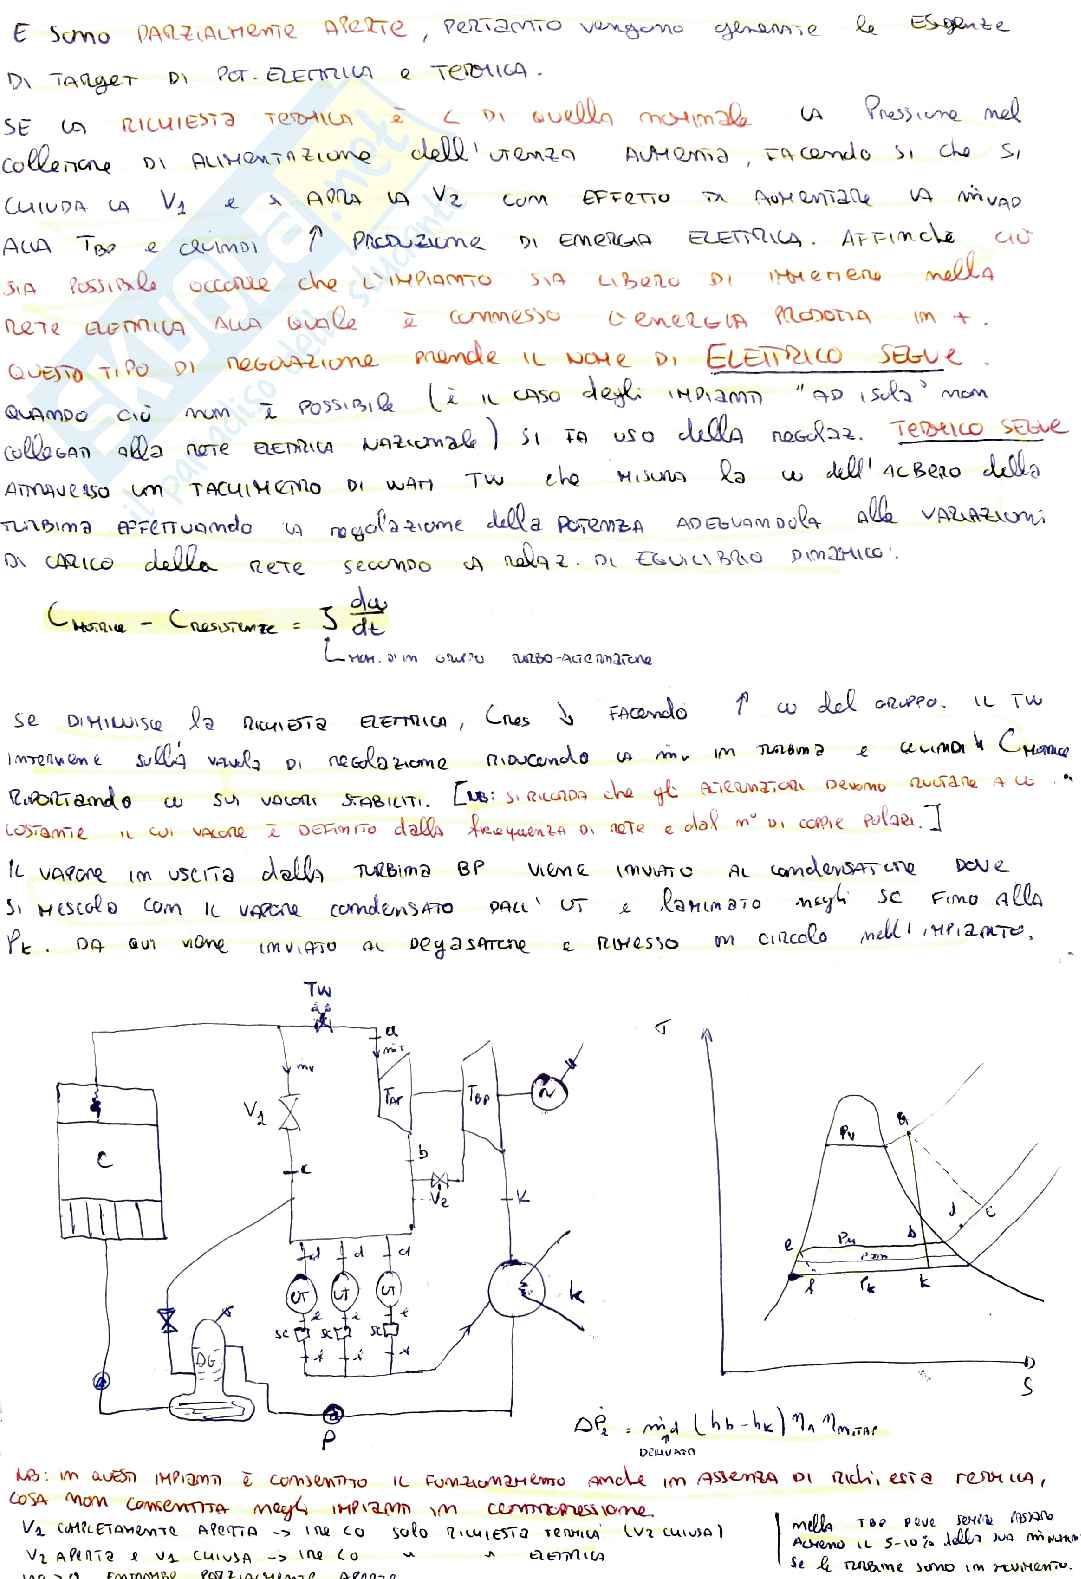 E SONO PARZIALMENTE APERTE, PERTANTO vengono generate le ESIGENZE
DI TARGET DI POT. ELETTRICA e TERMICA.
SE LA RICHIESTA TERMICA è < DI quella NORMALE LA PRESSIONE nel
COLLETTORE DI ALIMENTAZIONE dell'UTENZA AUMENTA, FACENDO SÌ CHE SI
CHIUDA LA V1 e si APRA LA V2 CON EFFETTO DI AUMENTARE LA ṁVAP
ALLA TBP e QUINDI ↑ PRODUZIONE DI ENERGIA ELETTRICA. AFFINCHÈ CIÒ
SIA POSSIBILE OCCORRE CHE L'IMPIANTO SIA LIBERO DI IMMETTERE NELLA
RETE ELETTRICA ALLA QUALE è CONNESSO L'ENERGIA PRODOTTA IN +.
QUESTO TIPO DI REGOLAZIONE PRENDE IL NOME DI ELETTRICO SEGUE.
QUANDO CIÒ NON È POSSIBILE (è IL CASO degli IMPIANTI "AD ISOLA" NON
COLLEGATI alla RETE ELETTRICA NAZIONALE) SI FA USO della REGOLAZ. TERMICO SEGUE
ATTRAVERSO UN TACHIMETRO DI WATT TW che MISURA la ω dell'ALBERO della
TURBINA EFFETTUANDO LA regolazione della POTENZA ADEGUANDOLA alle VARIAZIONI
DI CARICO della RETE SECONDO LA RELAZ. DI EQUILIBRIO DINAMICO:
CMOTRICE - CRESISTENTE = J dω/dt
MOM. D'IN GRUPPO TURBO-ALTERNATORE
SE DIMINUISCE la RICHIESTA ELETTRICA, CRES ↓ FACENDO ↑ ω del GRUPPO. IL TW
INTERVIENE sulla valvola DI REGOLAZIONE RIDUCENDO LA ṁv IN TURBINA e QUINDI ↓ CMOTRICE
RIPORTANDO ω SUI VALORI STABILITI. [NB: SI RICORDA che gli ALTERNATORI DEVONO RUOTARE A ω
COSTANTE IL CUI VALORE È DEFINITO dalla frequenza DI RETE e dal n° DI COPPIE POLARI.]
IL VAPORE IN USCITA dalla TURBINA BP VIENE INVIATO AL CONDENSATORE DOVE
SI MESCOLA CON IL VAPORE CONDENSATO DALL'UT e laminato negli SC FINO alla
PK. DA QUI VIENE INVIATO AL DEGASATORE e RIMESSO IN CIRCOLO nell'IMPIANTO.
TW
a
ṁv
V1
TAP
TBP
C
c
b
V2
K
d d d
UT UT UT
e e e
SC SC SC
f f f
k
DG
P
T
Pv
a
d
c
e
Pu
b
f
Pk
k
S
ΔṖ2 = ṁd (hb-hk) ηA ηM
DERIVATA
NB: IN QUESTI IMPIANTI È CONSENTITO IL FUNZIONAMENTO ANCHE IN ASSENZA DI RICHIESTA TERMICA,
COSA NON CONSENTITA negli IMPIANTI IN CONTROPRESSIONE.
V1 COMPLETAMENTE APERTA -> SOLO RICHIESTA TERMICA (V2 CHIUSA)
V2 APERTA e V1 CHIUSA -> " " ELETTRICA
ENTRAMBE PARZIALMENTE APERTE
NELLA TBP DEVE SEMPRE PASSARE
ALMENO IL 5-10% della SUA
SE le TURBINE SONO IN MOVIMENTO.
SKUOLA.net
il paradiso dello studente